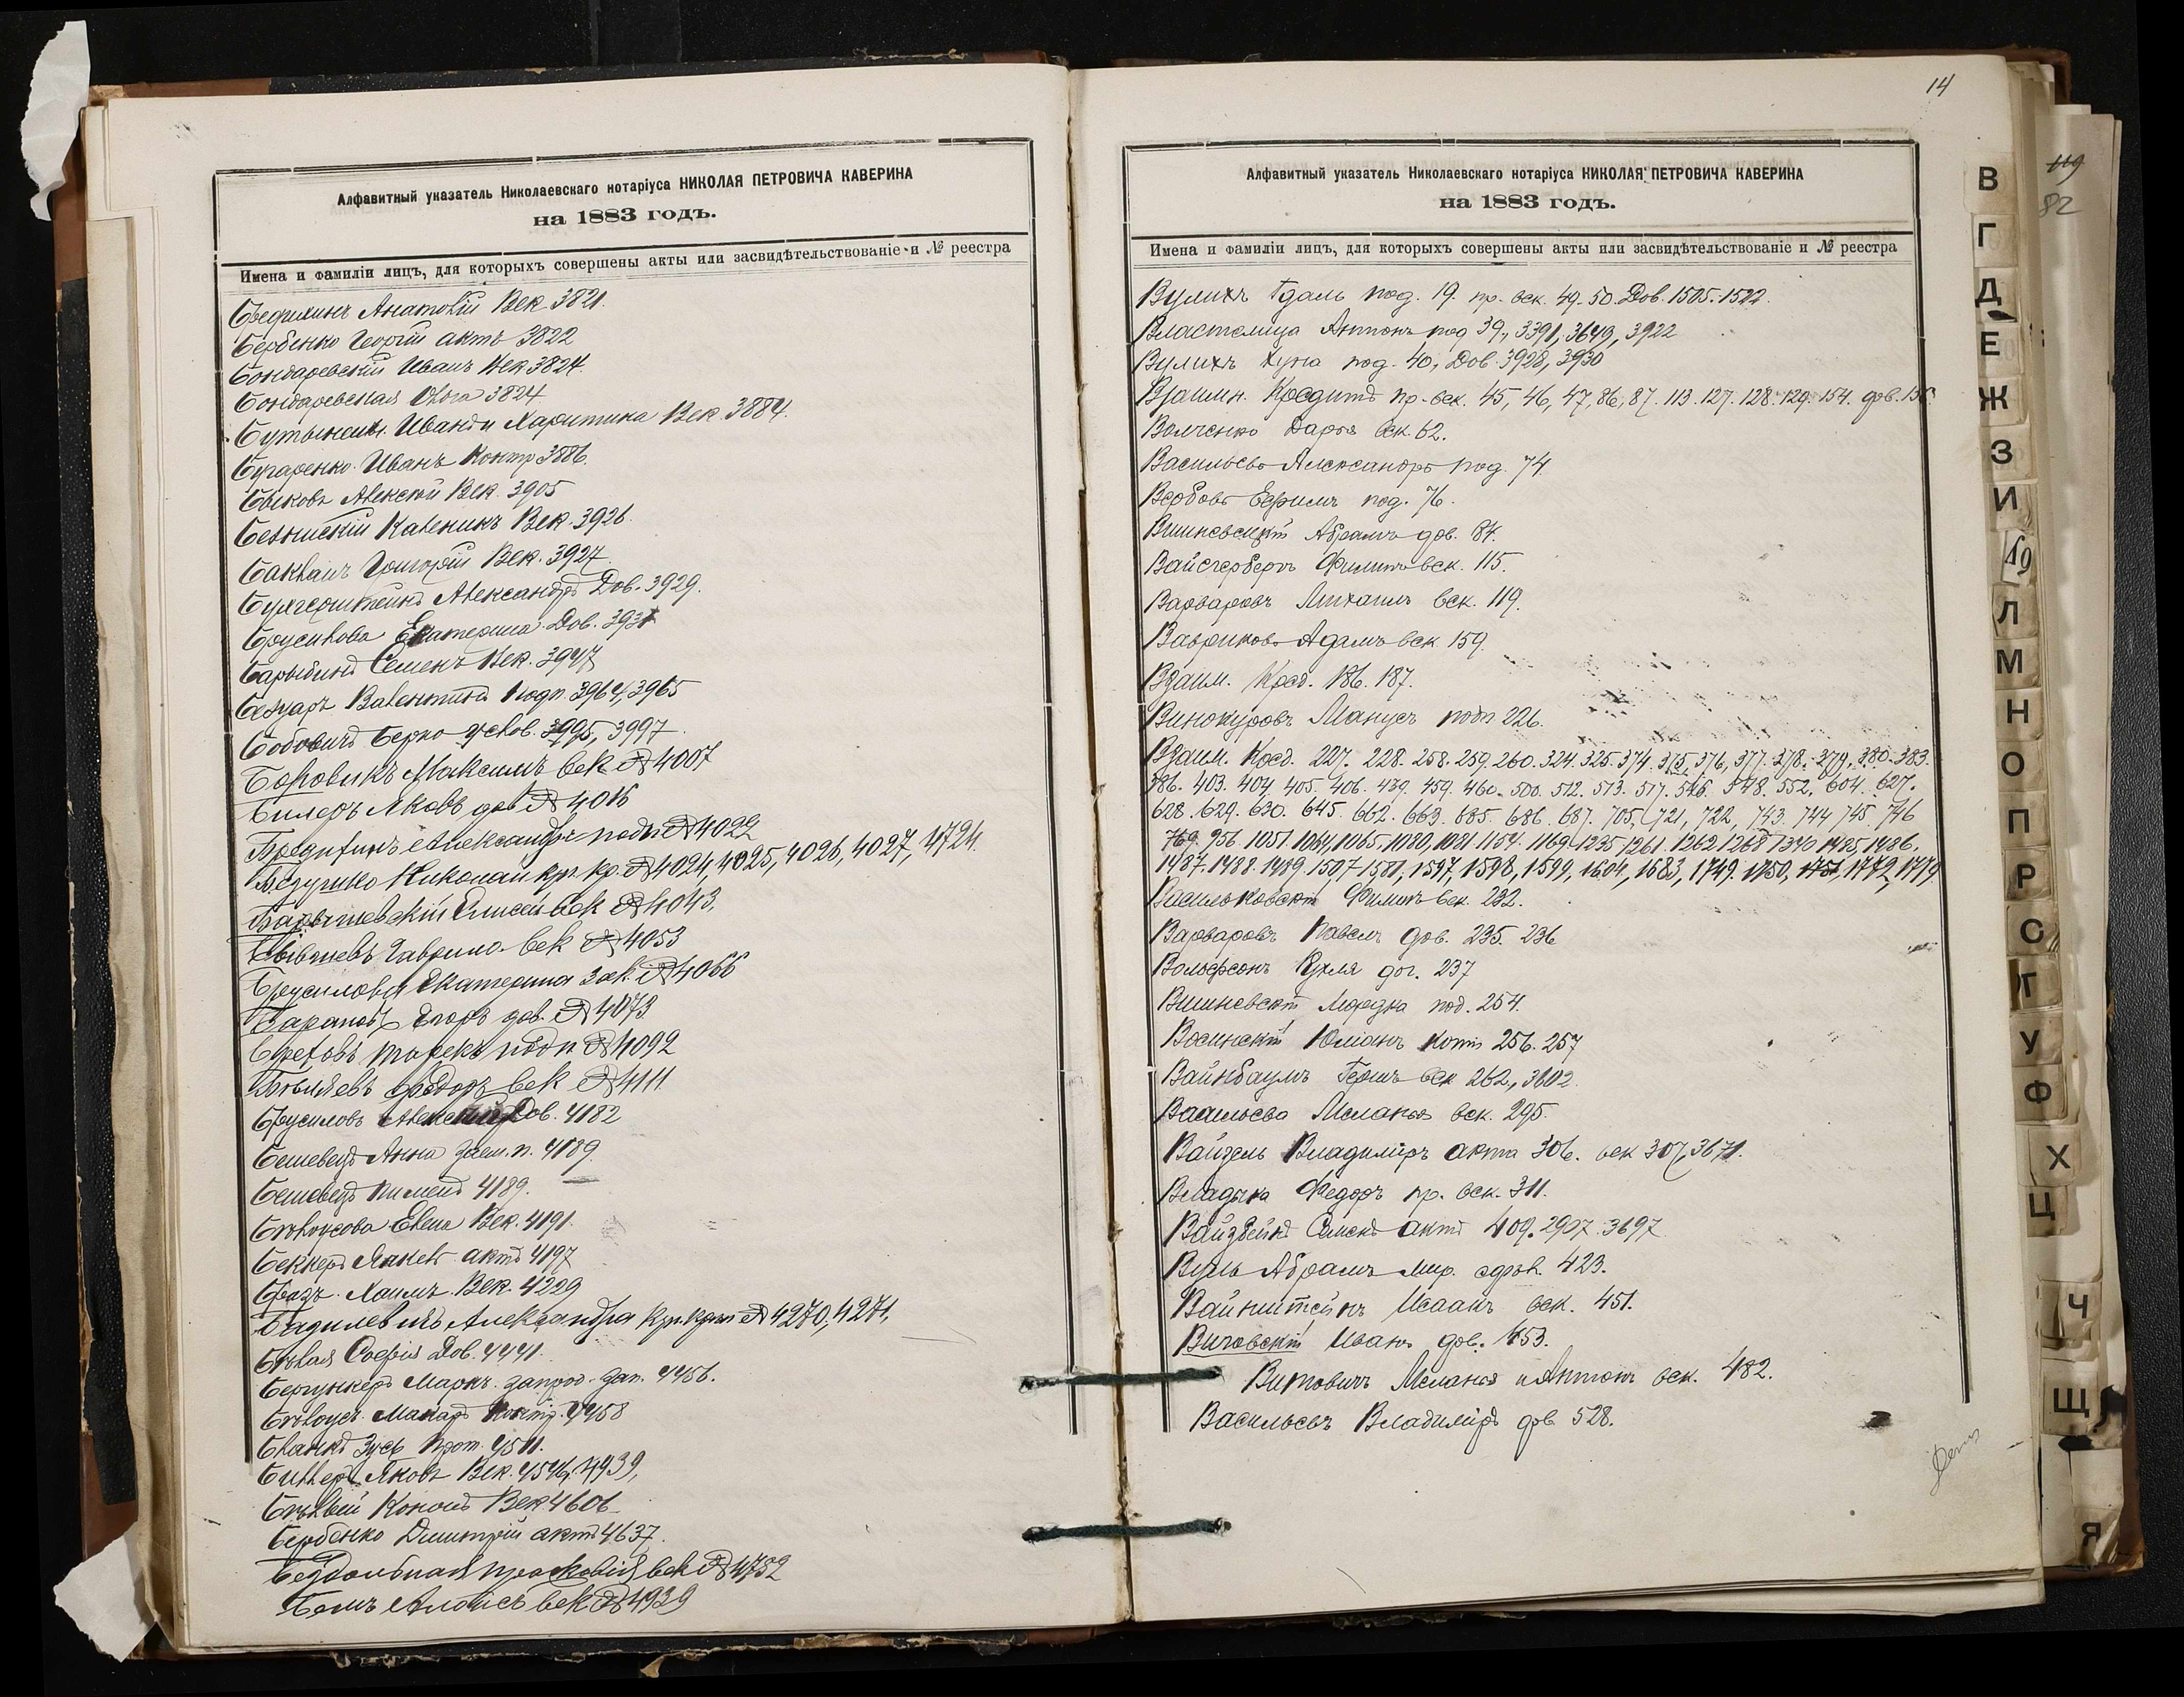 Алфавитный указатель Николаевскаго нотаріуса НИКОЛАЯ ПЕТРОВИЧА КАВЕРИНА
на 1883 годъ.
Имена и фамиліи лицъ, для которыхъ совершены акты или засвидѣтельствованіе и № реестра
Анатолій Век. 3821.
Бербенко Георгій актъ 3822
Бондаревскій Иванъ Век. 3824.
Бондаревская Ольга 3824
Иванъ и Харитина Век. 3884.
Бугаренко Иванъ Контр. 3886.
Быковъ Алексѣй Век. 3905
Каленикъ Век. 3926.
Бакланъ Григорій Век. 3927
Александръ Дов. 3929.
Брусилова Екатерина Дов. 3931
Барыбинъ Семенъ Век. 3947
Безуаръ Валентинъ Подп. 3964, 3965
Бобовичъ Берко услов. 3995, 3997
Боровикъ Максимъ век № 4007
Билеръ Яковъ дов № 4016
Бредихинъ Александръ подп № 4022
Безушко Николай кр. кр. № 4024, 4025, 4026, 4027, 4724.
Барышевскій Елисей век № 4043.
Гаврило век № 4053
Брусилова Екатерина зак. № 4066
Барановъ Егоръ дов. № 4073
подп № 4092
Федоръ век № 4111
Брусиловъ Алексѣй Дов. 4182
Бешевецъ Анна заем. п. 4189.
Бешевецъ Пименъ 4189.
Бѣлоусова Елена Век. 4191.
Беккеръ актъ 4197
Хаимъ Век. 4229
Базилевичъ Александра кр. № 4270, 4271,
Бѣлая Софія Дов. 4441.
Бергункеръ Маркъ запрод. зап. 4456.
Бѣлоусъ Макаръ Контр. 4458
Бланкъ Зусь Прот. 4511.
Биллеръ Яковъ Век. 4546, 4939,
Кононъ Век 4606
Бербенко Димитрій актъ 4637.
Бездольная Прасковія век № 4752
Бемъ Алоисъ век № 4939
14
Алфавитный указатель Николаевскаго нотаріуса НИКОЛАЯ ПЕТРОВИЧА КАВЕРИНА
на 1883 годъ.
Имена и фамиліи лицъ, для которыхъ совершены акты или засвидѣтельствованіе и № реестра
Вулихъ Гдаль под. 19. пр. век. 49. 50. Дов. 1505. 1522.
Властелица Антонъ под 39, 3391, 3649, 3922
Вулихъ Хуна под. 40, Дов. 3928, 3930
Взаимн. Кредитъ пр. век. 45, 46, 47, 86, 87. 113. 127. 128. 129. 154. дов. 156.
Волченко Дарья век. 62.
Васильевъ Александръ под. 74.
Вербовъ Ефримъ под. 76.
Вишневскій Абрамъ дов. 84.
Вайсгерберъ Филипъ век. 115.
Варваровъ Михаилъ век. 119.
Вавриковъ Адамъ век. 159.
Взаим. Кред. 186. 187.
Винокуровъ Манусъ подп 226.
Взаим. Кред. 227. 228. 258. 259. 260. 324. 325. 374. 375, 376, 377. 378. 379. 380. 383.
386. 403. 404. 405. 406. 439. 459. 460. 500. 512. 513. 517. 546. 548. 552. 604. 627.
628. 629. 630. 645. 662. 663. 685. 686. 687. 705, 721, 722, 743. 744 745. 746
769. 956 1051. 1064, 1065, 1080, 1081 1154. 1169 1235 1261. 1262 1268 1340 1485, 1486,
1487. 1488. 1489. 1507 1581, 1597, 1598, 1599, 1604, 1683, 1749. 1750, 1751, 1772, 1779
Васильковскій Филипъ век. 232.
Варваровъ Павелъ дов. 235. 236
Вольфсонъ Рухля дог. 237
Вишневскій Мордка под. 254.
Воинскій Юліанъ контр 256. 257
Вайнбаумъ Гершъ век 262, 3602.
Васильева Меланья век. 295.
Вайзель Владиміръ акта 306. век 307, 3671.
Владыка Федоръ пр. век. 311.
Вайзбейнъ Семенъ актъ 409. 2907. 3697
Вуль Абрамъ мир. сдѣл. 423.
Вайнштейнъ Исаакъ век. 451.
Виговскій Иванъ дов. 453.
Витовичъ Меланья и Антонъ век. 482.
Васильевъ Владиміръ дов. 528.
119
82
В
Г
Д
Е
Ж
З
И
Л
М
Н
О
П
Р
С
Т
У
Ф
Х
Ц
Ч
Щ
Я